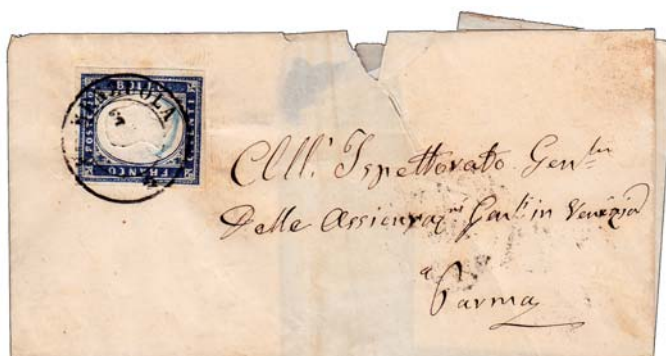 FRANCO
BOLLO
POSTE
All'. Ispettorato Gen.le
Delle Assicuraz.ni Gen.li in Venezia
a
Parma